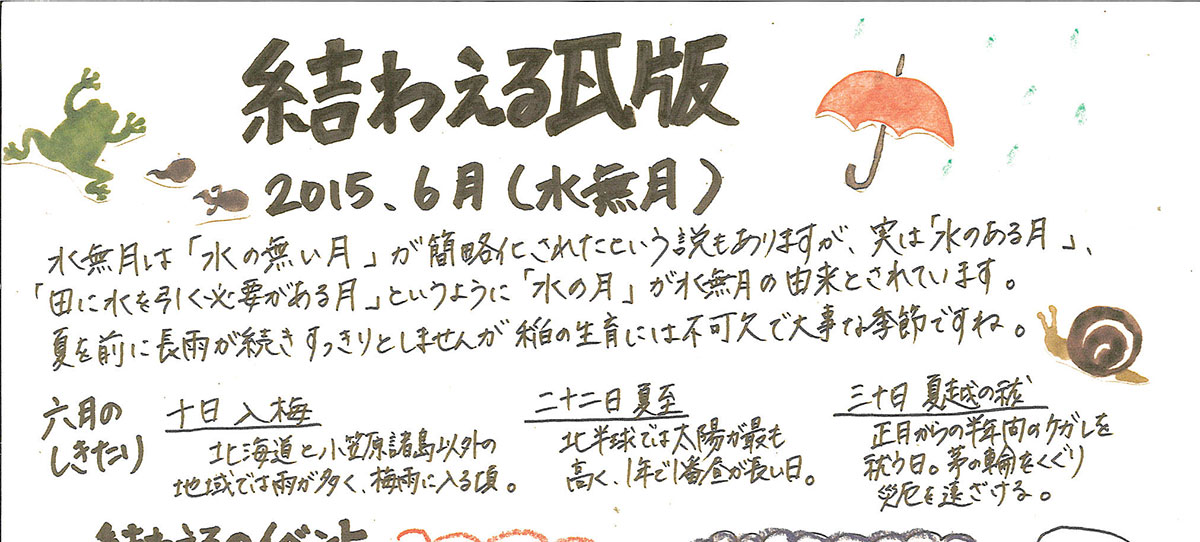 結わえる瓦版
2015、6月(水無月)
水無月は「水の無い月」が簡略化されたという説もありますが、実は「水のある月」、
「田に水を引く必要がある月」というように「水の月」が水無月の由来とされています。
夏を前に長雨が続きすっきりとしませんが稲の生育には不可欠で大事な季節ですね。
六月の
しきたり
十日 入梅
北海道と小笠原諸島以外の
地域では雨が多く、梅雨に入る頃。
二十二日 夏至
北半球では太陽が最も
高く、1年で1番昼が長い日。
三十日 夏越の祓
正月からの半年間のケガレを
祓う日。茅の輪をくぐり
災厄を遠ざける。
結わえるのイベント